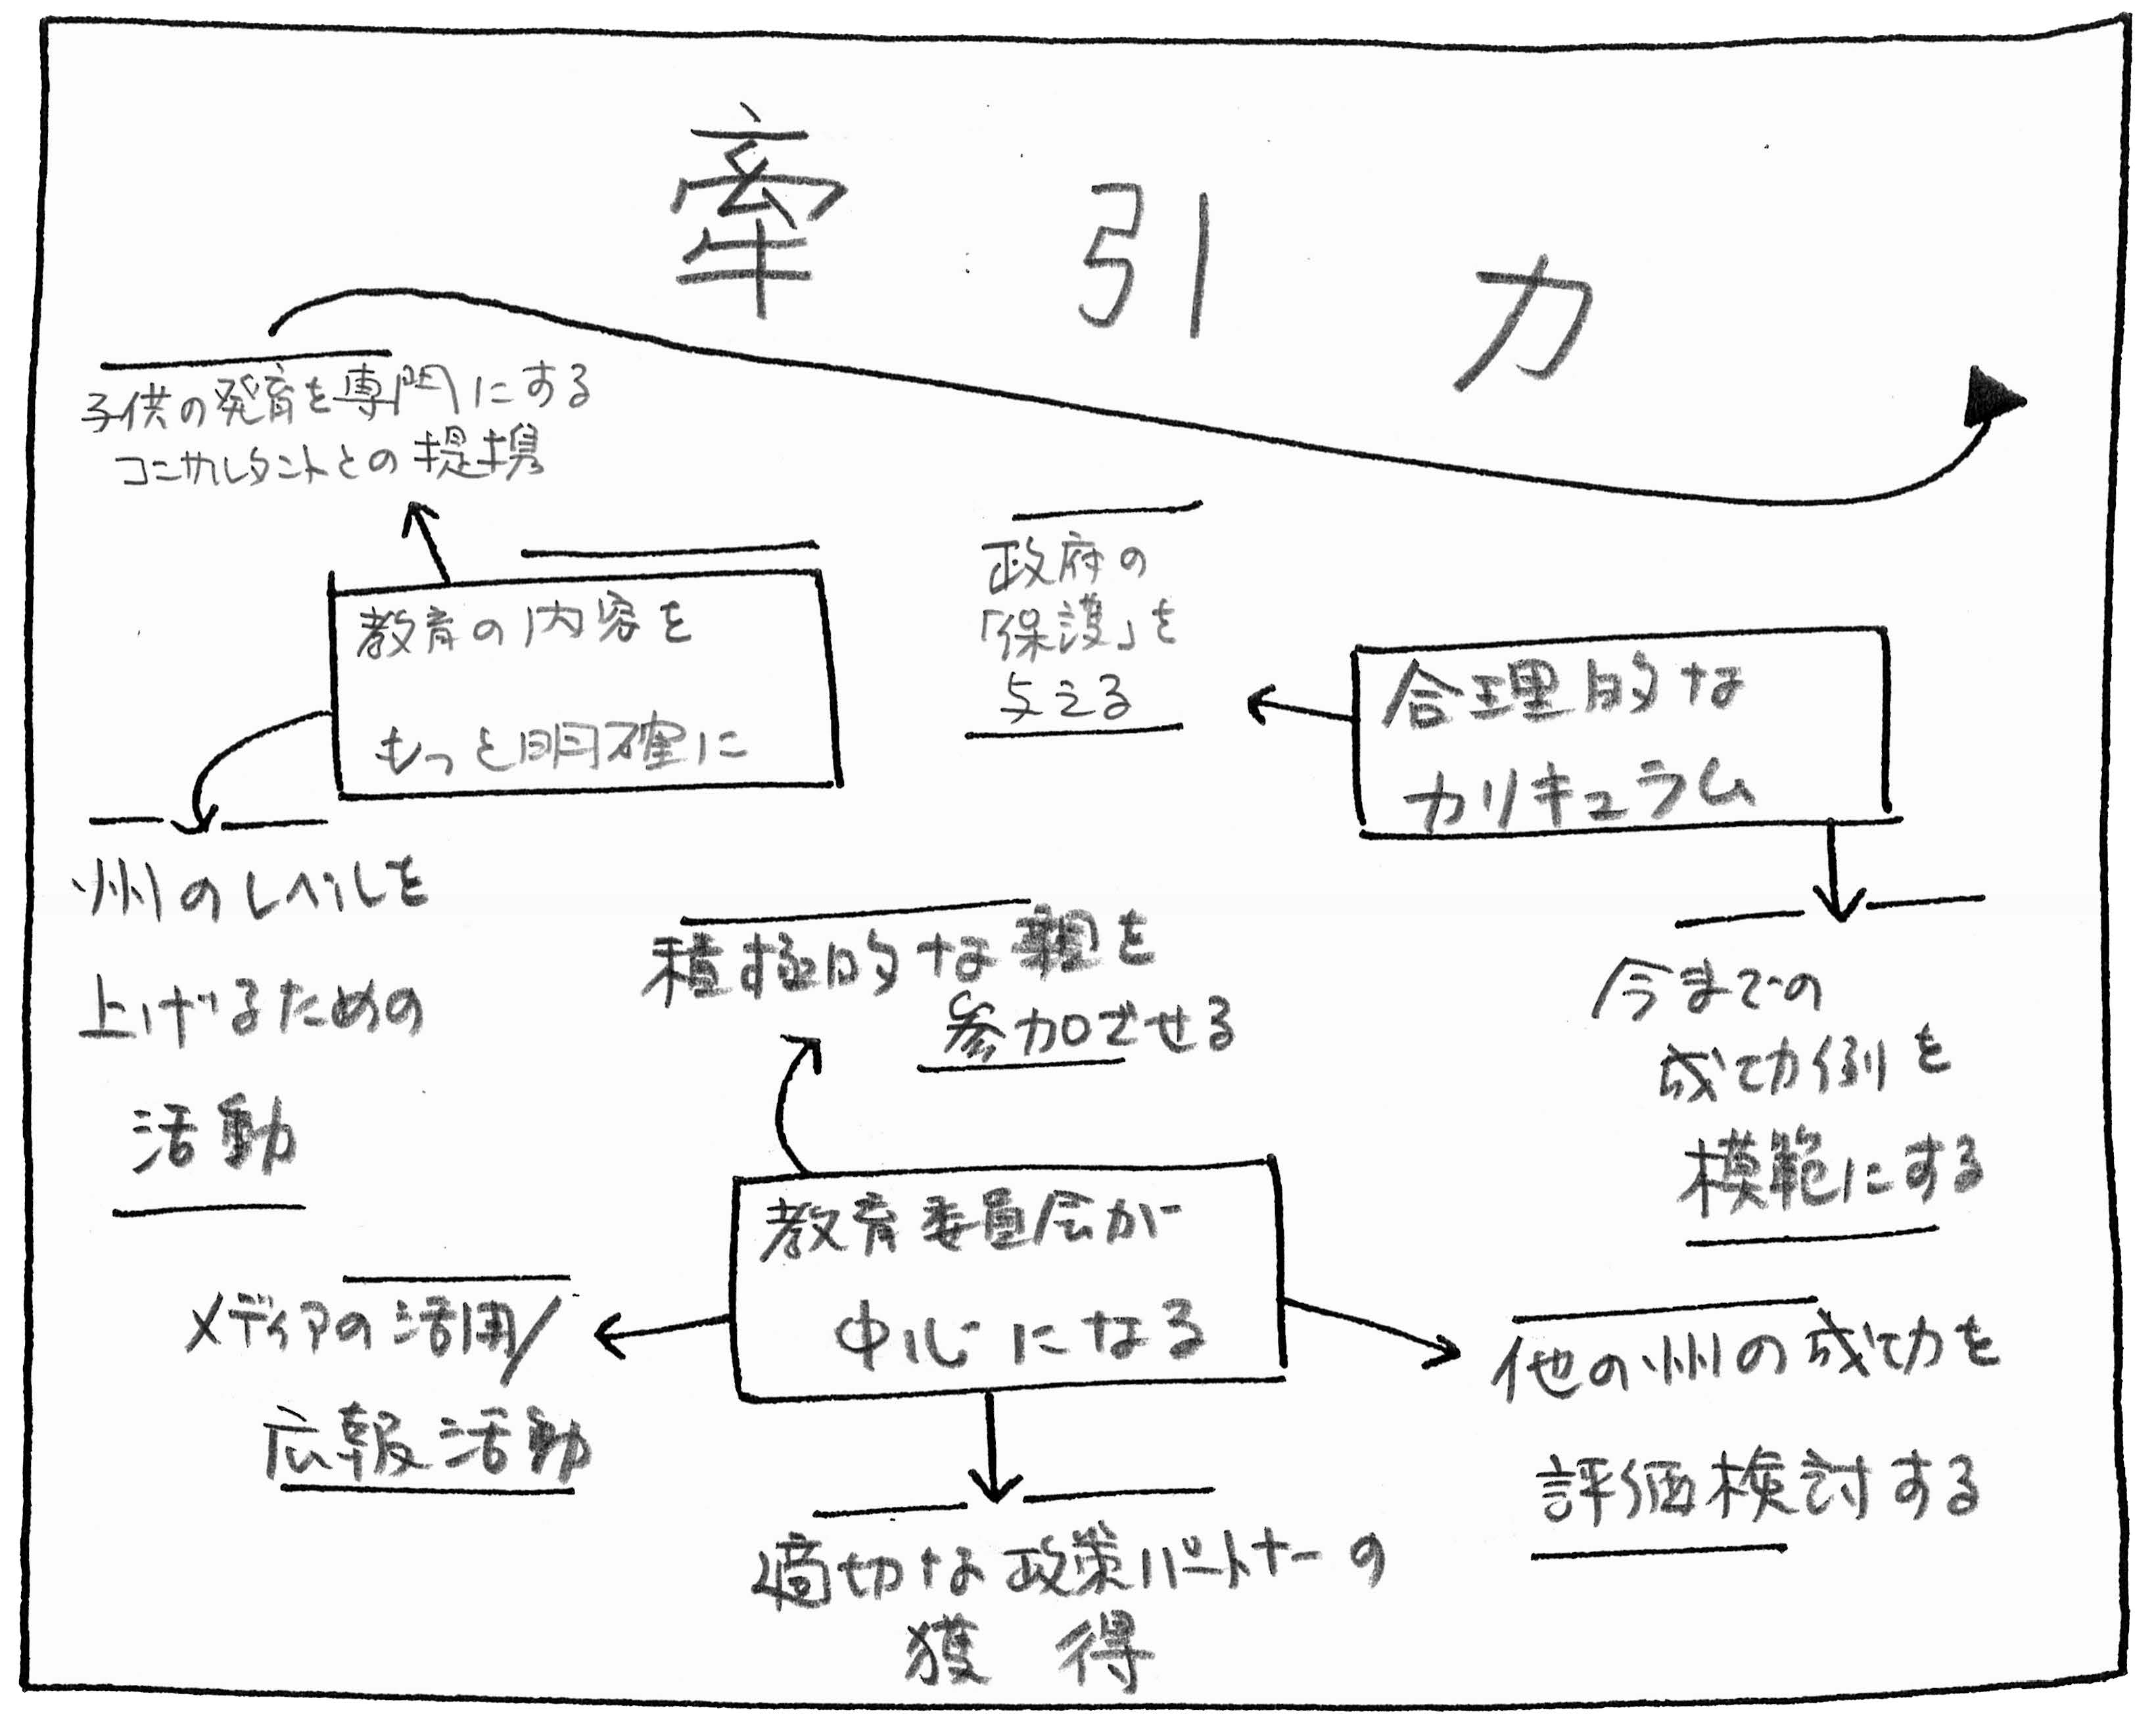 牽引力
子供の発育を専門にする
コンサルタントとの提携
教育の内容を
もっと明確に
政府の
「保護」を
与える
合理的な
カリキュラム
州のレベルを
上げるための
活動
積極的な親を
参加させる
今までの
成功例を
模範にする
教育委員会が
中心になる
メディアの活用/
広報活動
他の州の成功を
評価検討する
適切な政策パートナーの
獲得